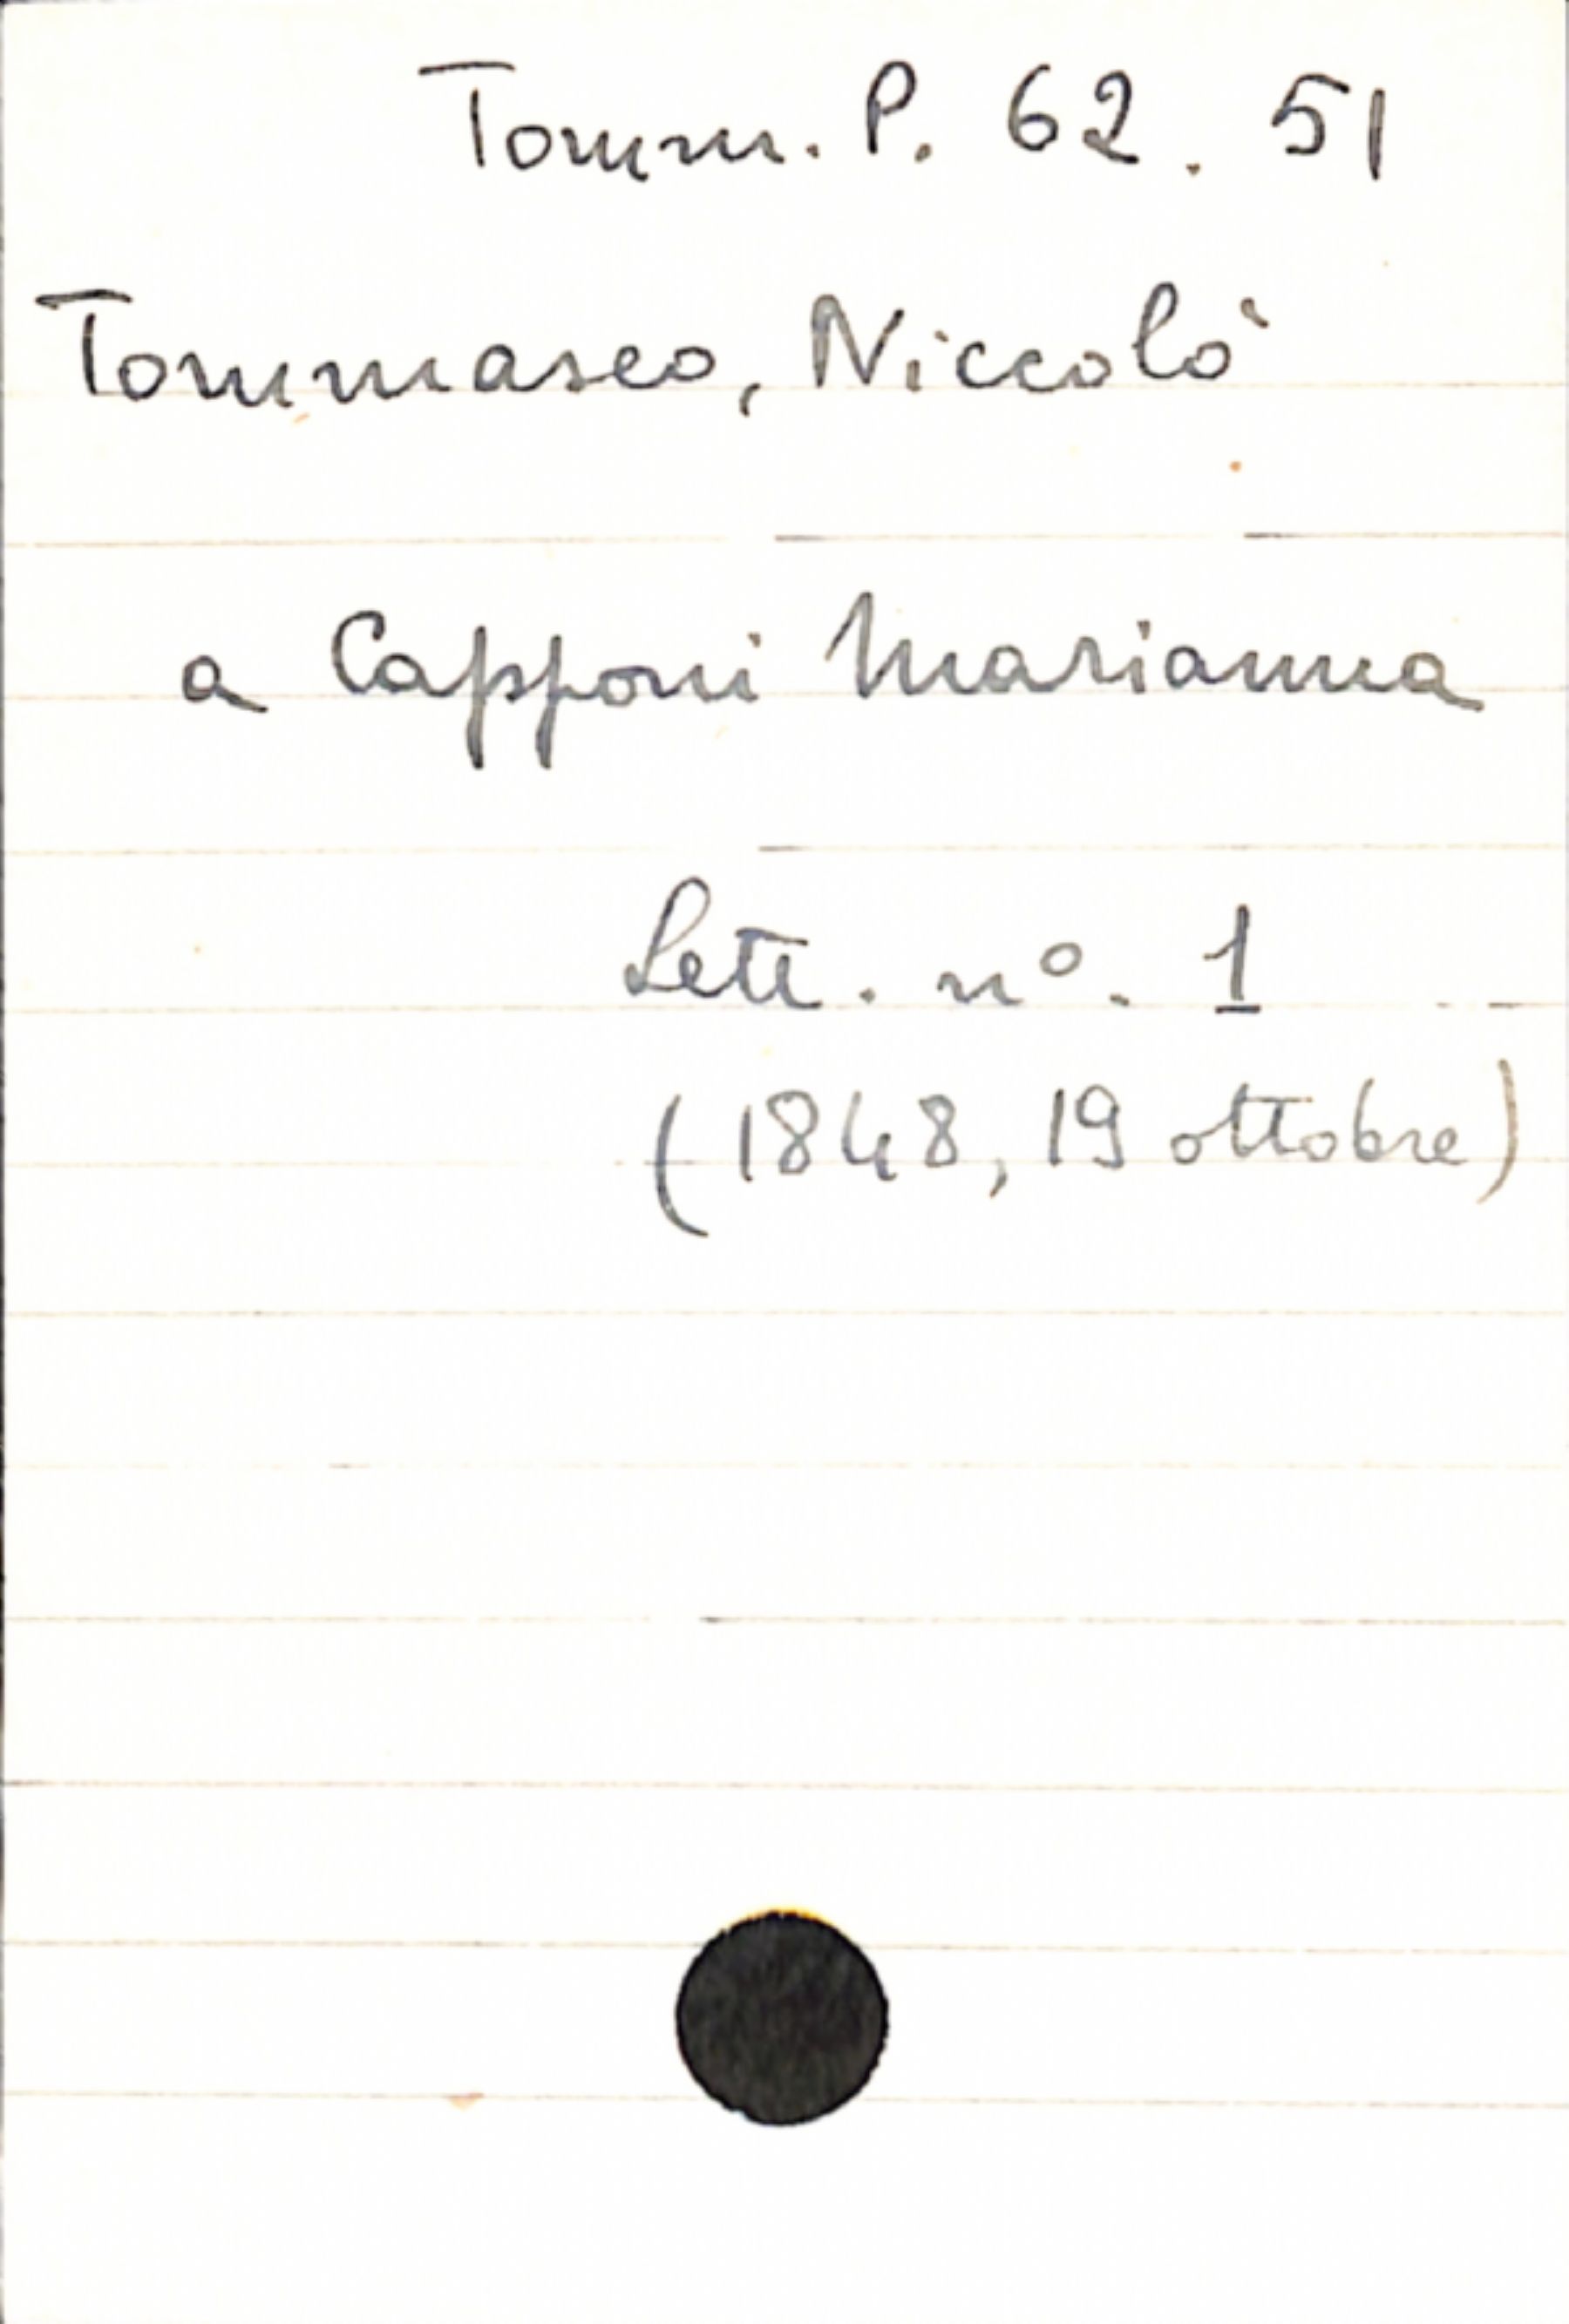 Tomm. P. 62. 51
Tommaseo, Niccolò
a Capponi Marianna
Lett. n°. 1
(1848, 19 ottobre)